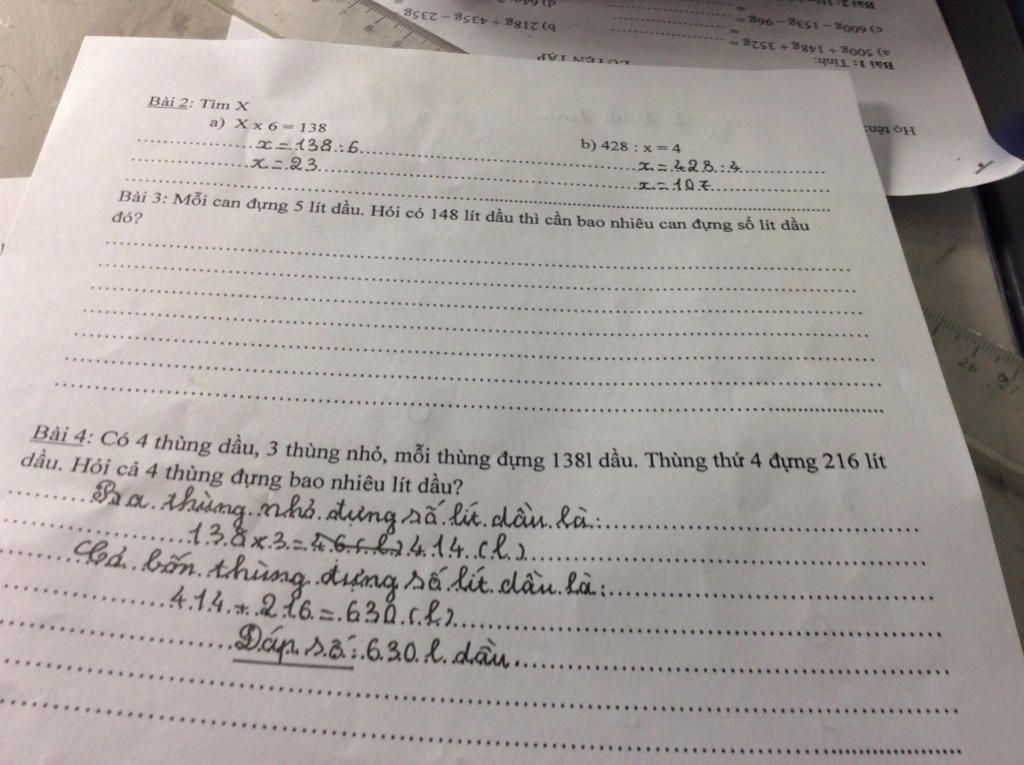 Bài 1: Tính:
a) 500g + 148g + 352g =
b) 218g + 435g – 235g
c) 600g – 153g – 96g =
=
LUYỆN TẬP
Họ tên:
Bài 2: Tìm X
a) X x 6 = 138
x = 138 : 6
x = 23
b) 428 : x = 4
x = 428 : 4
x = 107
Bài 3: Mỗi can đựng 5 lít dầu. Hỏi có 148 lít dầu thì cần bao nhiêu can đựng số lít dầu
đó?
Bài 4: Có 4 thùng dầu, 3 thùng nhỏ, mỗi thùng đựng 138l dầu. Thùng thứ 4 đựng 216 lít
dầu. Hỏi cả 4 thùng đựng bao nhiêu lít dầu?
Ba thùng nhỏ đựng số lít dầu là:
138 x 3 = 46 (l) 414 (l)
Cả bốn thùng đựng số lít dầu là:
414 + 216 = 630 (l)
Đáp số: 630 l dầu
26 27